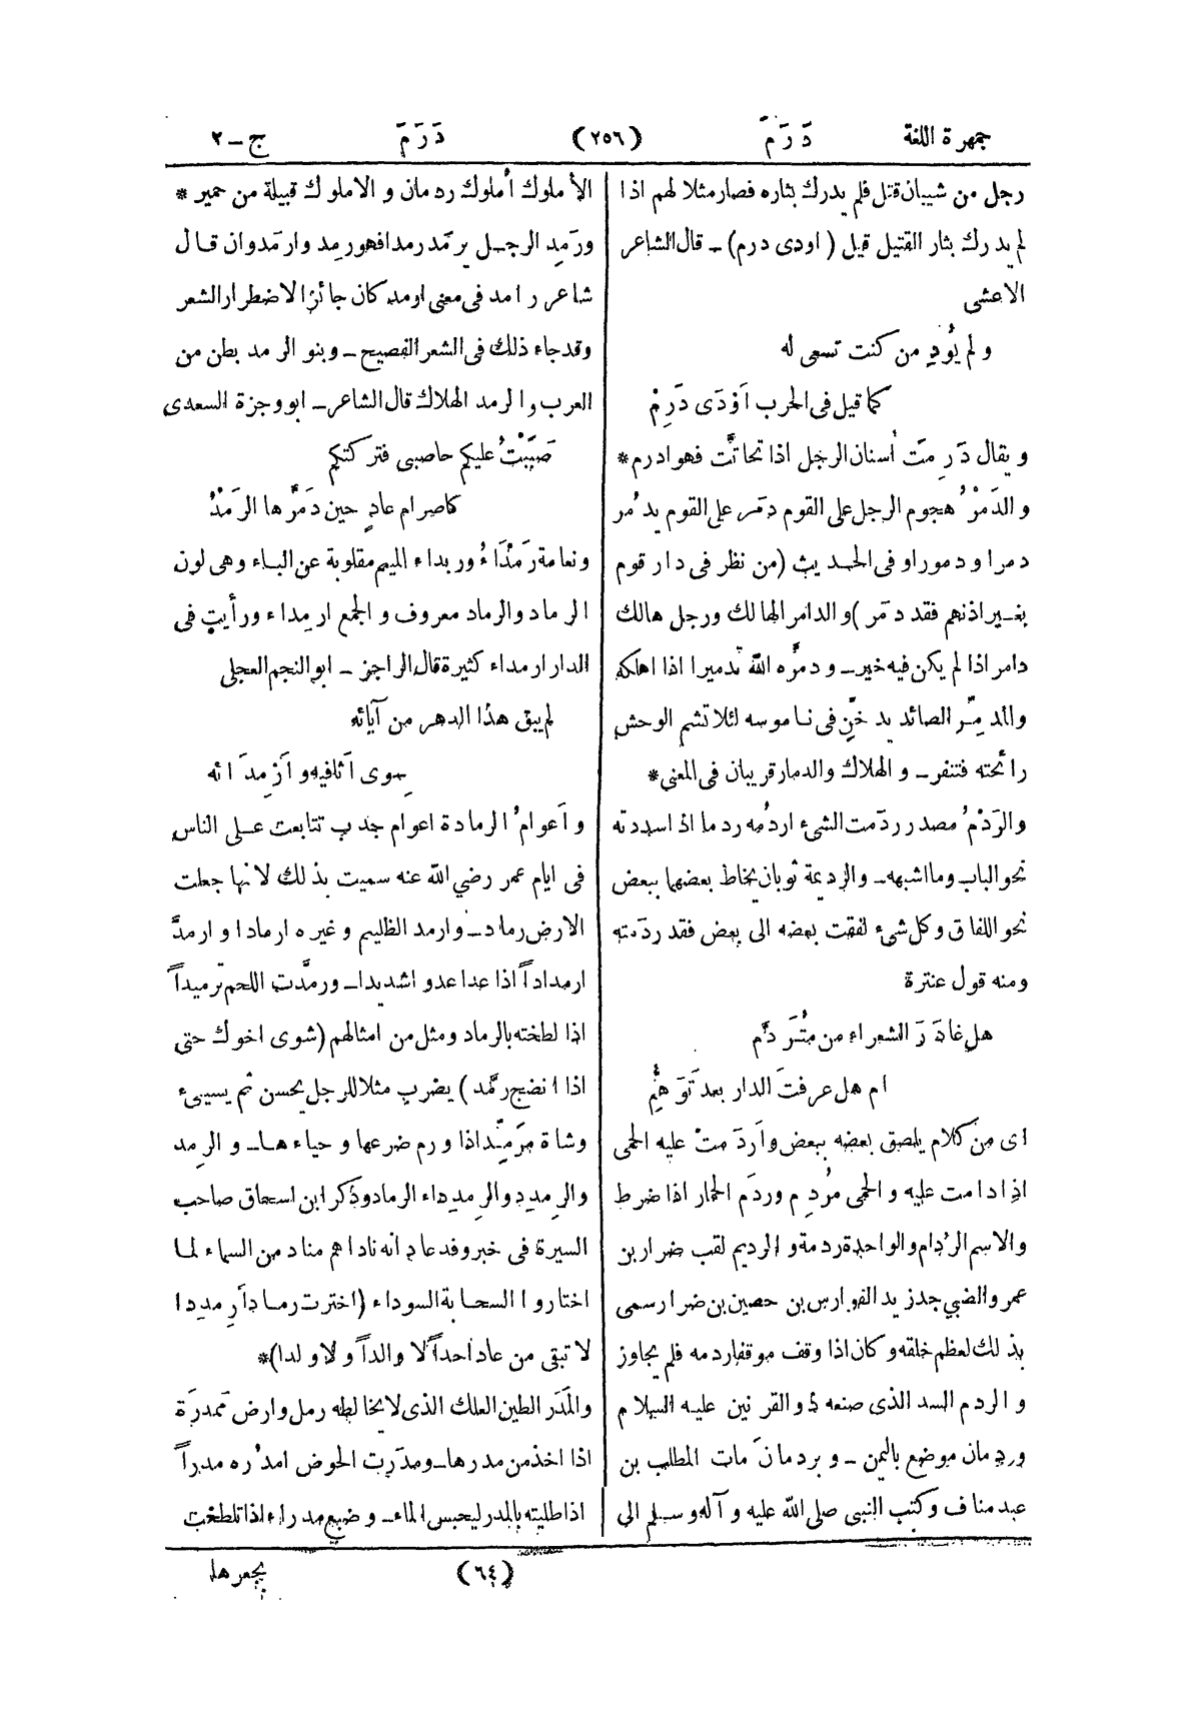 جمهرة اللغة دَرَمَ (٢٥٦) دَرَمَ ج ـ ٢
رجل من شيبان قتل فلم يدرك بثاره فصار مثلا لهم اذا
لم يدرك بثار القتيل قيل ( اودى درم) ـ قال الشاعر
الاعشى
ولم يُودِ من كنت تسعى له
كما قيل فى الحرب اَوْدَى دَرِمْ
ويقال دَرِمَت أسنان الرجل اذا تحاتَّت فهو ادرم *
والدَمْرُ هجوم الرجل على القوم دمَر على القوم يدمُر
دمرا ودمورا وفى الحديث (من نظر فى دار قوم
بغير اذنهم فقد دمَر ) والدامر الهالك ورجل هالك
دامر اذا لم يكن فيه خير ـ ودمَّره اللّٰه تدميرا اذا اهلكه
والمدمِّر الصائد يدخِّن فى ناموسه لئلا تشم الوحش
رائحته فتنفر ـ والهلاك والدمار قريبان فى المعنى *
والرَدْمُ مصدر ردَمت الشىء اردُمه ردما اذا سددته
نحو الباب وما اشبهه ـ والرديمة ثوبان يخاط بعضهما ببعض
نحو اللفاق وكل شىء لفقت بعضه الى بعض فقد ردَمته
ومنه قول عنترة
هل غادَرَ الشعراء من مُتَرَدَّم
ام هل عرفتَ الدار بعد تَوَهُّمِ
اى من كلام يلصق بعضه ببعض وأردَمتْ عليه الحمى
اذا دامت عليه والحمى مُردِم وردَم الحمار اذا ضرط
والاسم الرُدام والواحدة ردمة والرديم لقب ضرار بن
عمرو الضبي جد زيد الفوارس بن حصين بن ضرار سمى
بذلك لعظم خلقه وكان اذا وقف موقفا ردمه فلم يجاوز
والردم السد الذى صنعه ذو القرنين عليه السلام
وردمان موضع باليمن ـ وبردمانَ مات المطلب بن
عبد مناف وكتب النبى صلى اللّٰه عليه وآله وسلم الى
الأملوك أملوك ردمان والاملوك قبيلة من حمير *
ورَمِد الرجل يرمَد رمدا فهو رمد وارمد وان قال
شاعر رامد فى معنى ارمد كان جائزا لاضطرار الشعر
وقد جاء ذلك فى الشعر الفصيح ـ وبنو الرمد بطن من
العرب والرمد الهلاك قال الشاعر ـ ابو وجزة السعدى
صَبَبْتُ عليكم حاصبى فتركتكم
كاصرام عادٍ حين دَمَّرها الرَمْدُ
ونعامة رَمْدَاءُ وربداء الميم مقلوبة عن الباء وهى لون
الرماد والرماد معروف والجمع ارمداء ورأيت فى
الدار ارمداء كثيرة قال الراجز ـ ابو النجم العجلى
لم يبق هذا الدهر من آيائه
سوى اَثافيه واَرْمِدَائه
واَعوامُ الرمادة اعوام جدب تتابعت على الناس
فى ايام عمر رضي اللّٰه عنه سميت بذلك لانها جعلت
الارض رماد ـ وارمد الظليم وغيره ارمادا وارمدَّ
ارمداداً اذا عدا عدوا شديدا ـ ورمَّدت اللحم ترميداً
اذا لطخته بالرماد ومثل من امثالهم (شوى اخوك حتى
اذا انضج رمَّد ) يضرب مثلا للرجل يحسن ثم يسيىء
وشاة مرَمِّد اذا ورم ضرعها وحياءها ـ والرمد
والرمدِد والرمديداء الرماد وذكر ابن اسحاق صاحب
السيرة فى خبر وفد عاد انه ناداهم مناد من السماء لما
اختاروا السحابة السوداء (اخترت رمادا رِمددا
لا تبقى من عاد احداً لا والداً ولا ولدا) *
والمَدَر الطين العلك الذى لا يخالطه رمل وارض ممدرَة
اذا اخذ من مدرها ـ ومدَرت الحوض امدُره مدراً
اذا طليته بالمدر ليحبس الماء ـ وضبع مدراء اذا تلطخت
(٦٤) بجعرها